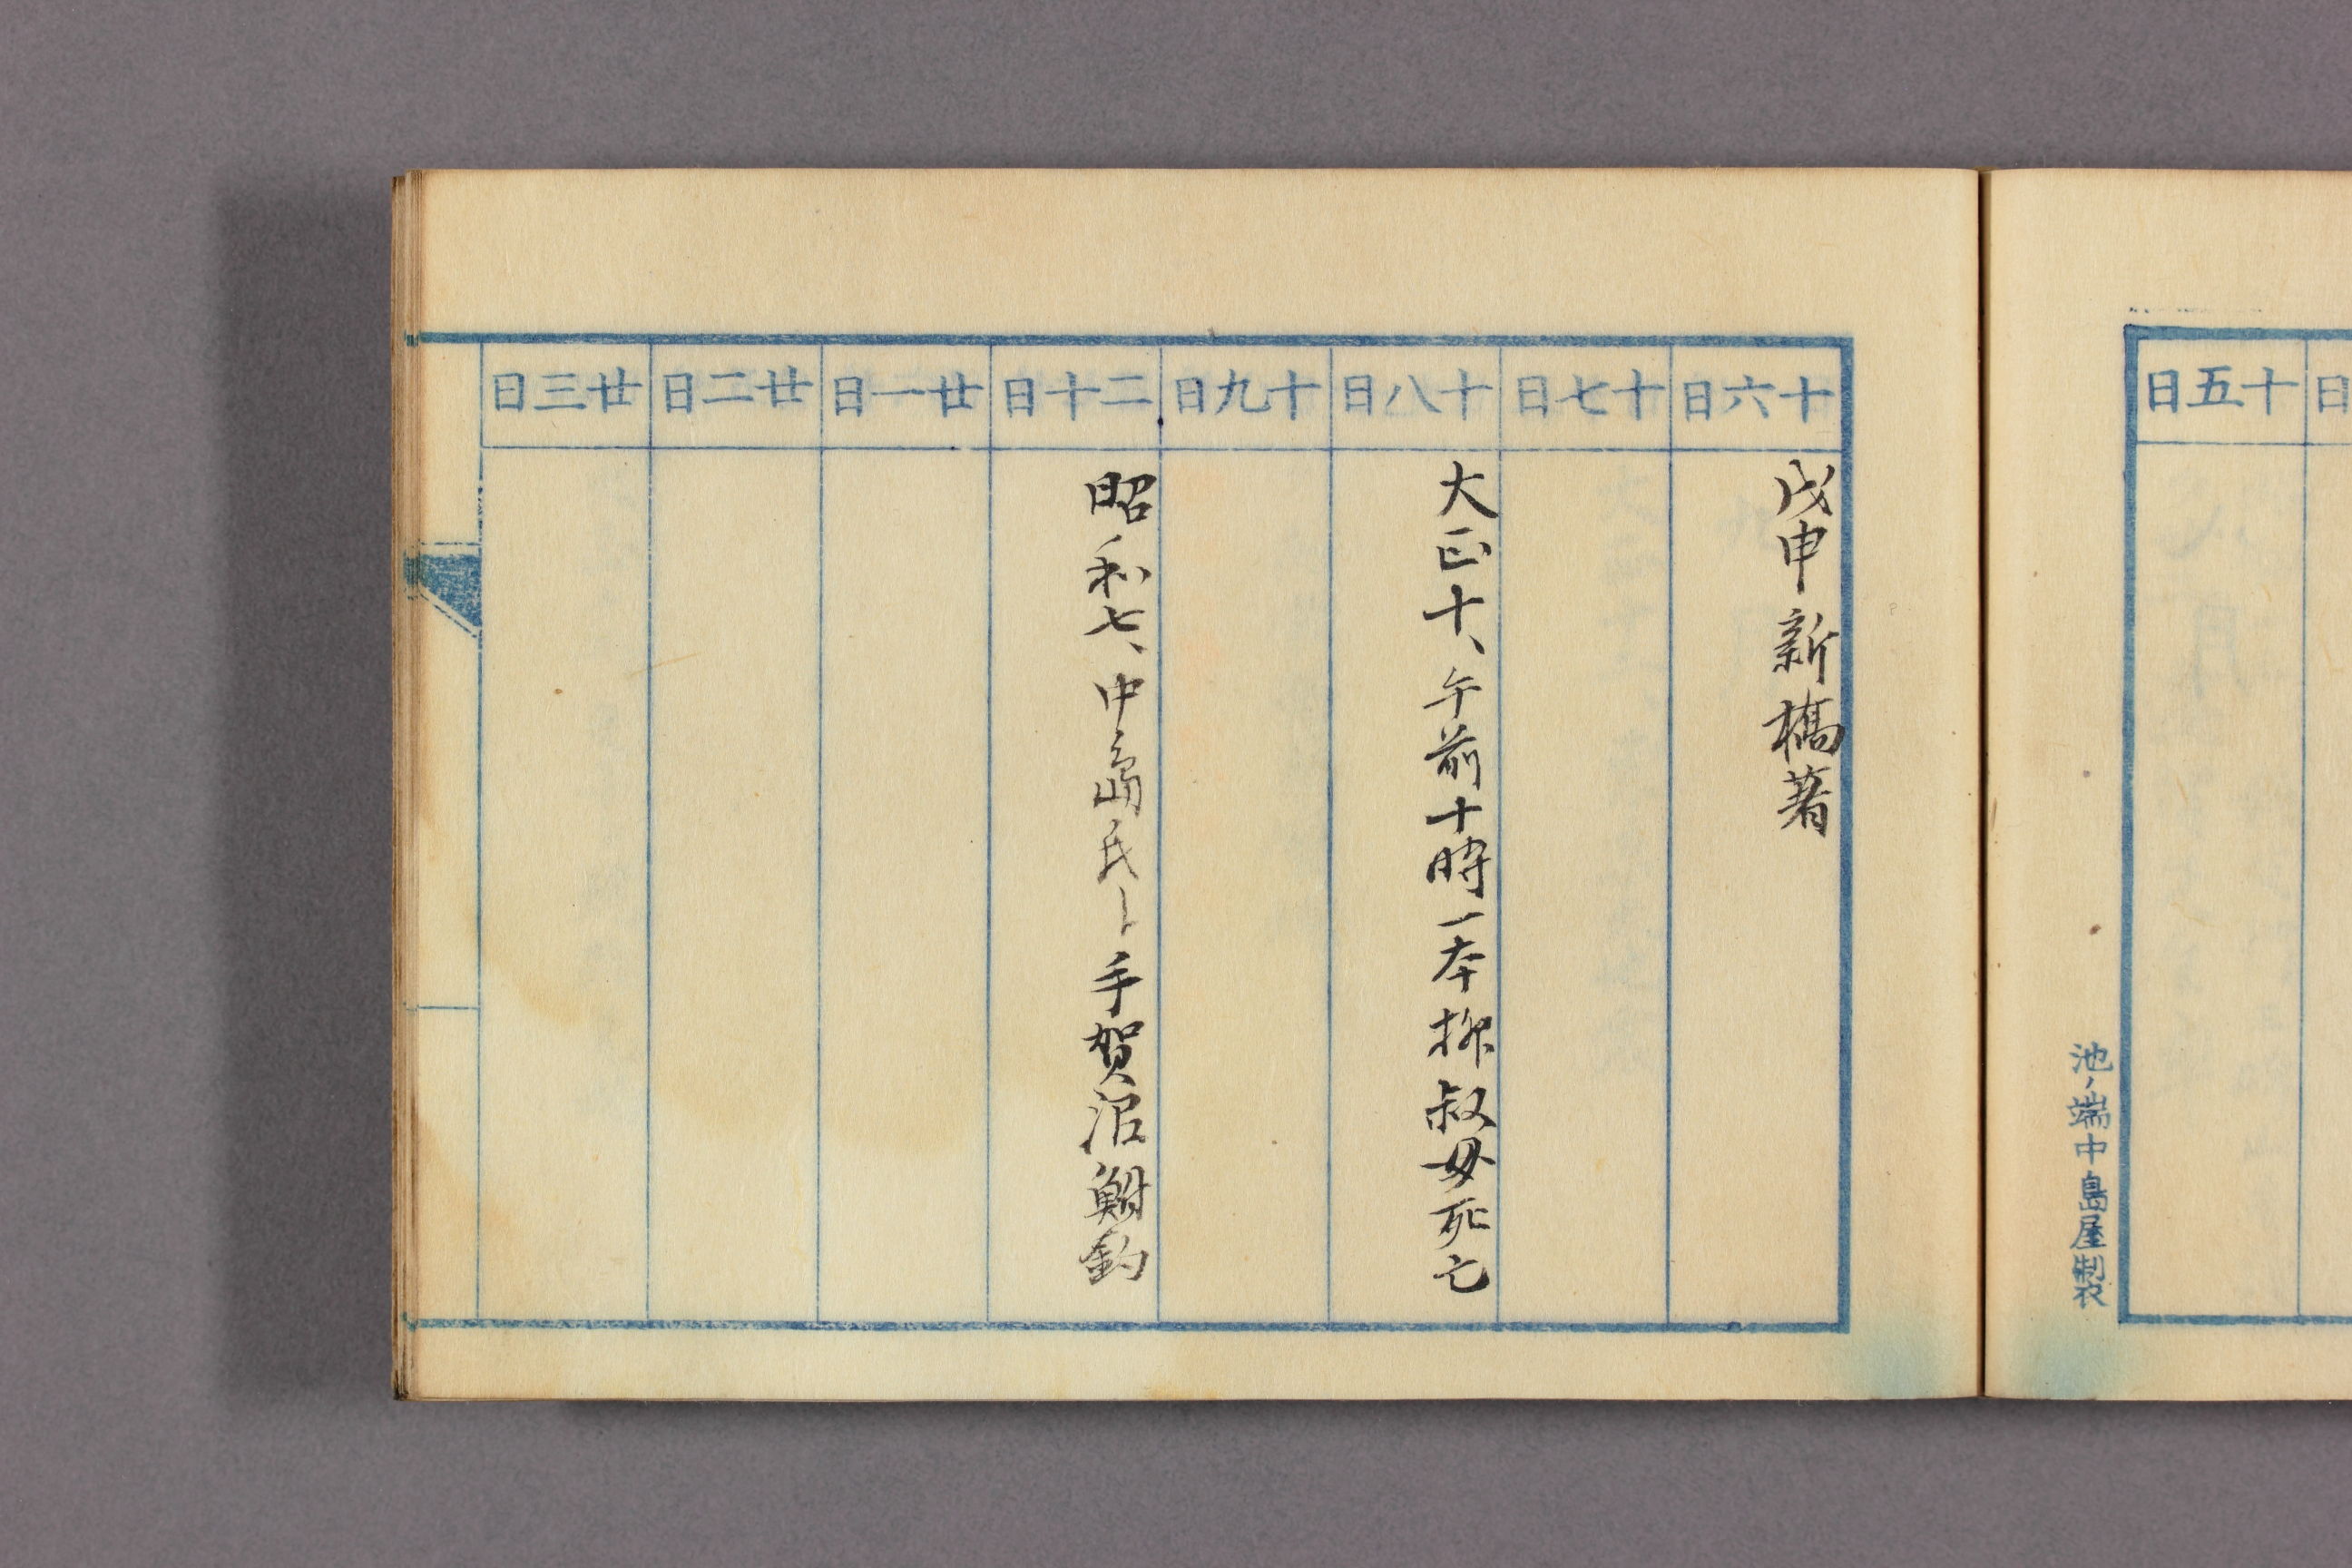 十五日
池ノ端中島屋製
十六日
戊申新橋著
十七日
十八日
大正十、午前十時一本柳叔母死亡
十九日
二十日
昭和七、中嶌氏ト手賀沼鮒釣
廿一日
廿二日
廿三日